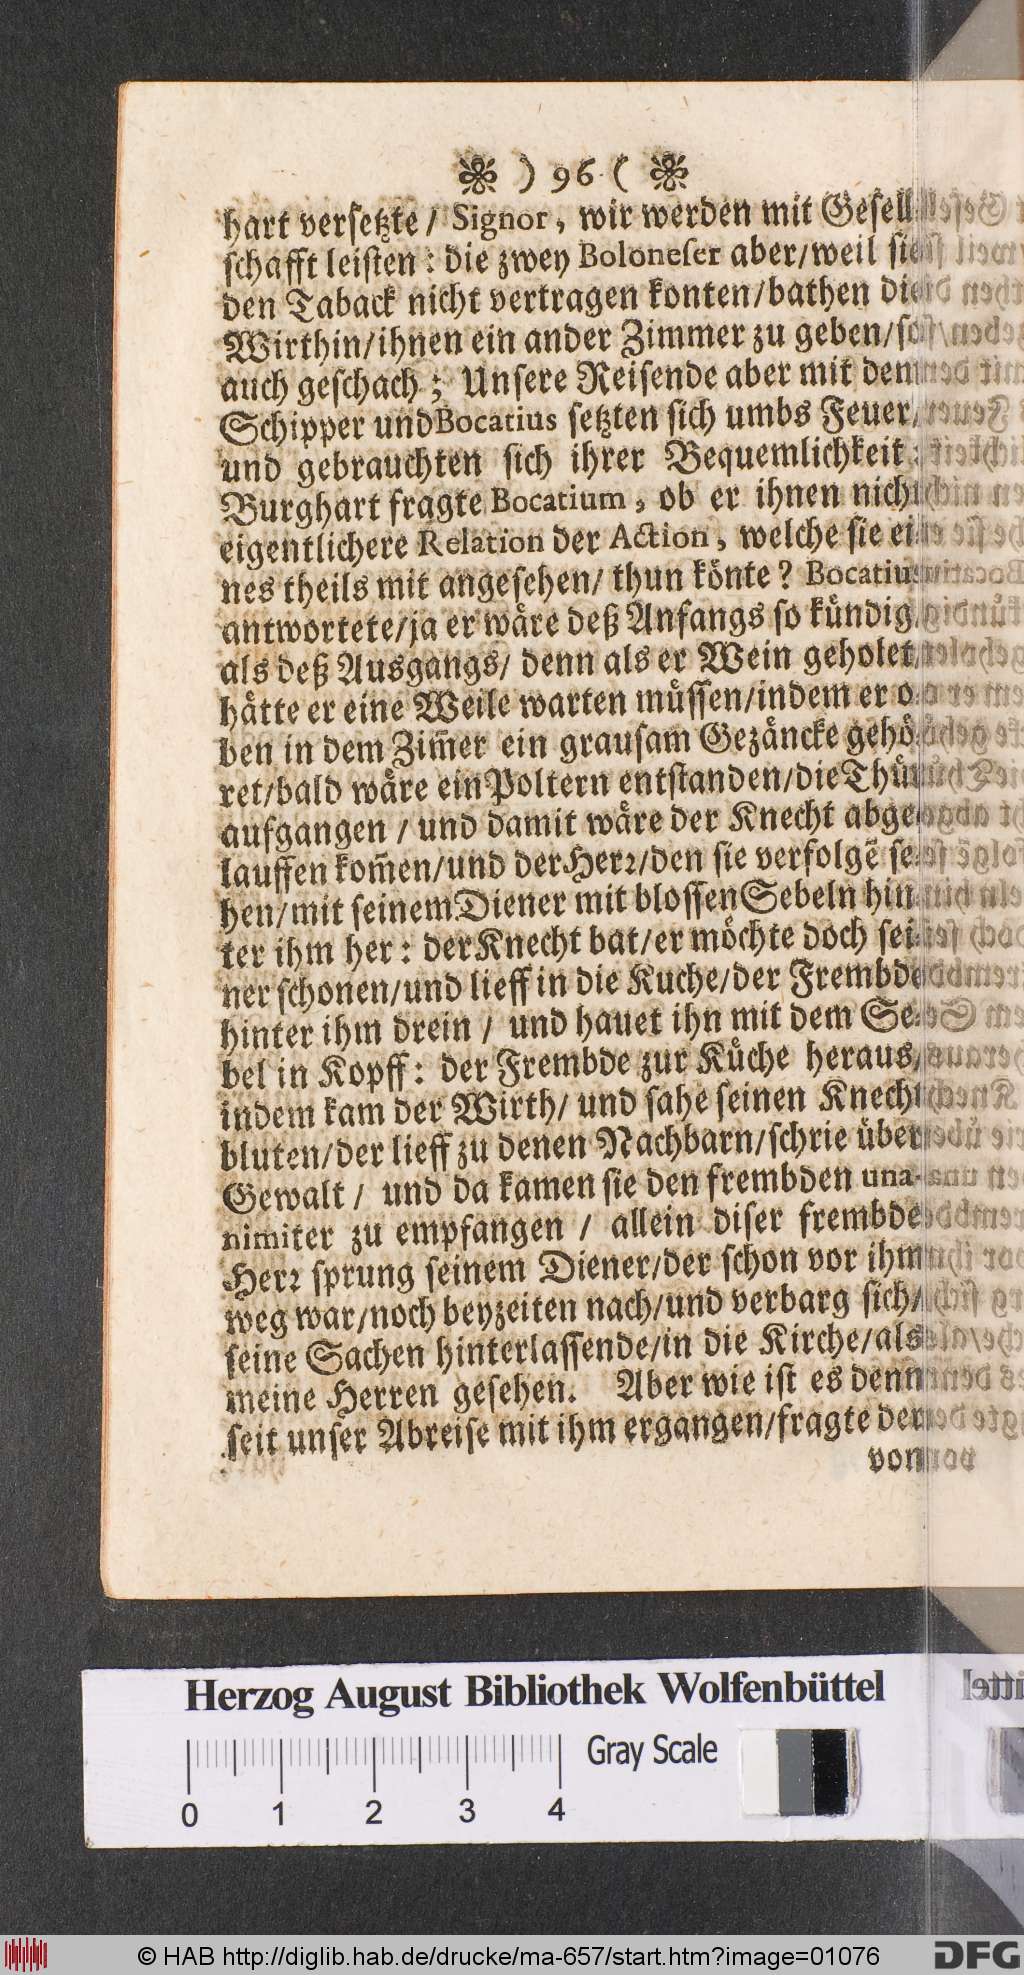 ) 96 (
hart versetzte / Signor, wir werden mit Gesell
schafft leisten: die zwey Boloneser aber/weil sie
den Taback nicht vertragen konten/bathen die
Wirthin/ihnen ein ander Zimmer zu geben/so
auch geschach; Unsere Reisende aber mit dem
Schipper und Bocatius setzten sich umbs Feuer/
und gebrauchten sich ihrer Bequemlichkeit:
Burghart fragte Bocatium, ob er ihnen nicht
eigentlichere Relation der Action, welche sie ei-
nes theils mit angesehen/ thun könte? Bocatius
antwortete/ja er wäre deß Anfangs so kündig/
als deß Ausgangs/ denn als er Wein geholet/
hätte er eine Weile warten müssen/indem er o-
ben in dem Zim̃er ein grausam Gezäncke gehö-
ret/bald wäre ein Poltern entstanden/die Thür
aufgangen / und damit wäre der Knecht abge-
lauffen kom̃en/und der Herꝛ/den sie verfolgẽ se-
hen/mit seinem Diener mit blossen Sebeln hin-
ter ihm her: der Knecht bat/er möchte doch sei-
ner schonen/und lieff in die Kuche/der Frembde
hinter ihm drein / und hauet ihn mit dem Se-
bel in Kopff: der Frembde zur Küche heraus/
indem kam der Wirth/ und sahe seinen Knecht
bluten/der lieff zu denen Nachbarn/schrie über
Gewalt / und da kamen sie den frembden una-
nimiter zu empfangen / allein diser frembde
Herꝛ sprung seinem Diener/der schon vor ihm
weg war/noch beyzeiten nach/und verbarg sich/
seine Sachen hinterlassende/in die Kirche/als
meine Herren gesehen. Aber wie ist es denn
seit unser Abreise mit ihm ergangen/fragte der
von
Herzog August Bibliothek Wolfenbüttel
Gray Scale
0 1 2 3 4
© HAB http://diglib.hab.de/drucke/ma-657/start.htm?image=01076
DFG